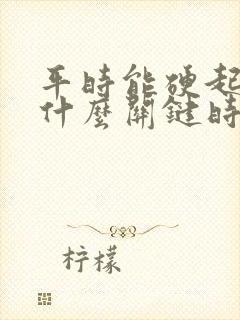 平時能硬起
什麼關鍵時
柠檬